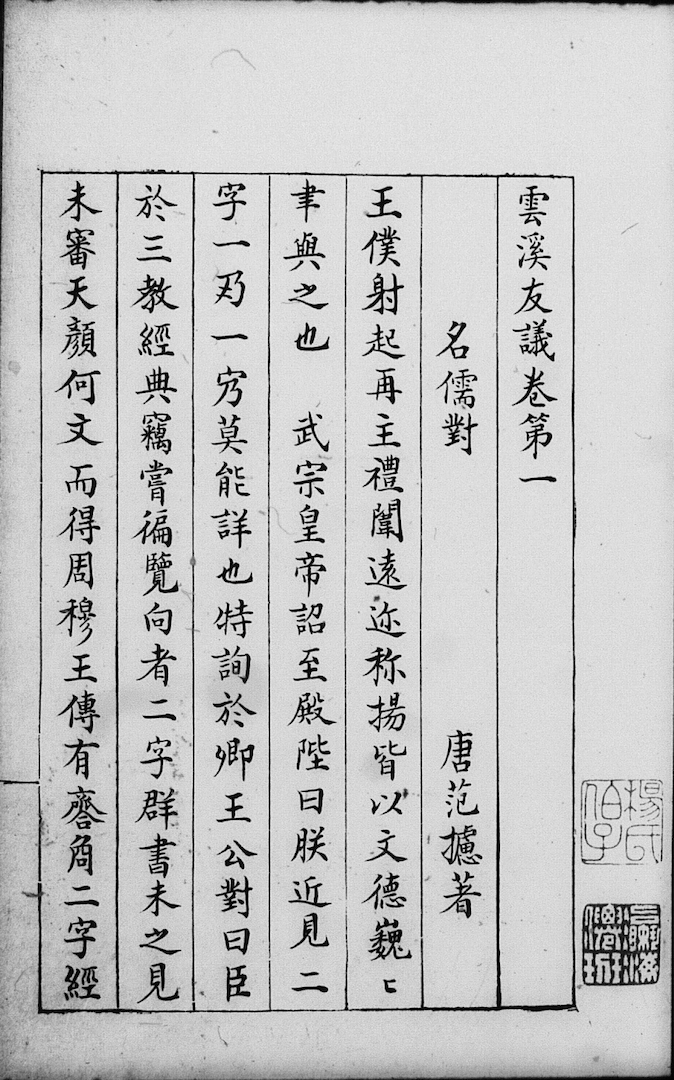 雲溪友議卷第一
名儒對 唐范攄著
王僕射起再主禮闈遠迩称揚皆以文德巍〻
聿與之也 武宗皇帝詔至殿陛曰朕近見二
字一㓜一穷莫能詳也特詢於卿王公對曰臣
於三教經典竊嘗徧覽向者二字群書未之見
未審天顏何文而得周穆王傳有㕑角二字經
楊氏
伯子